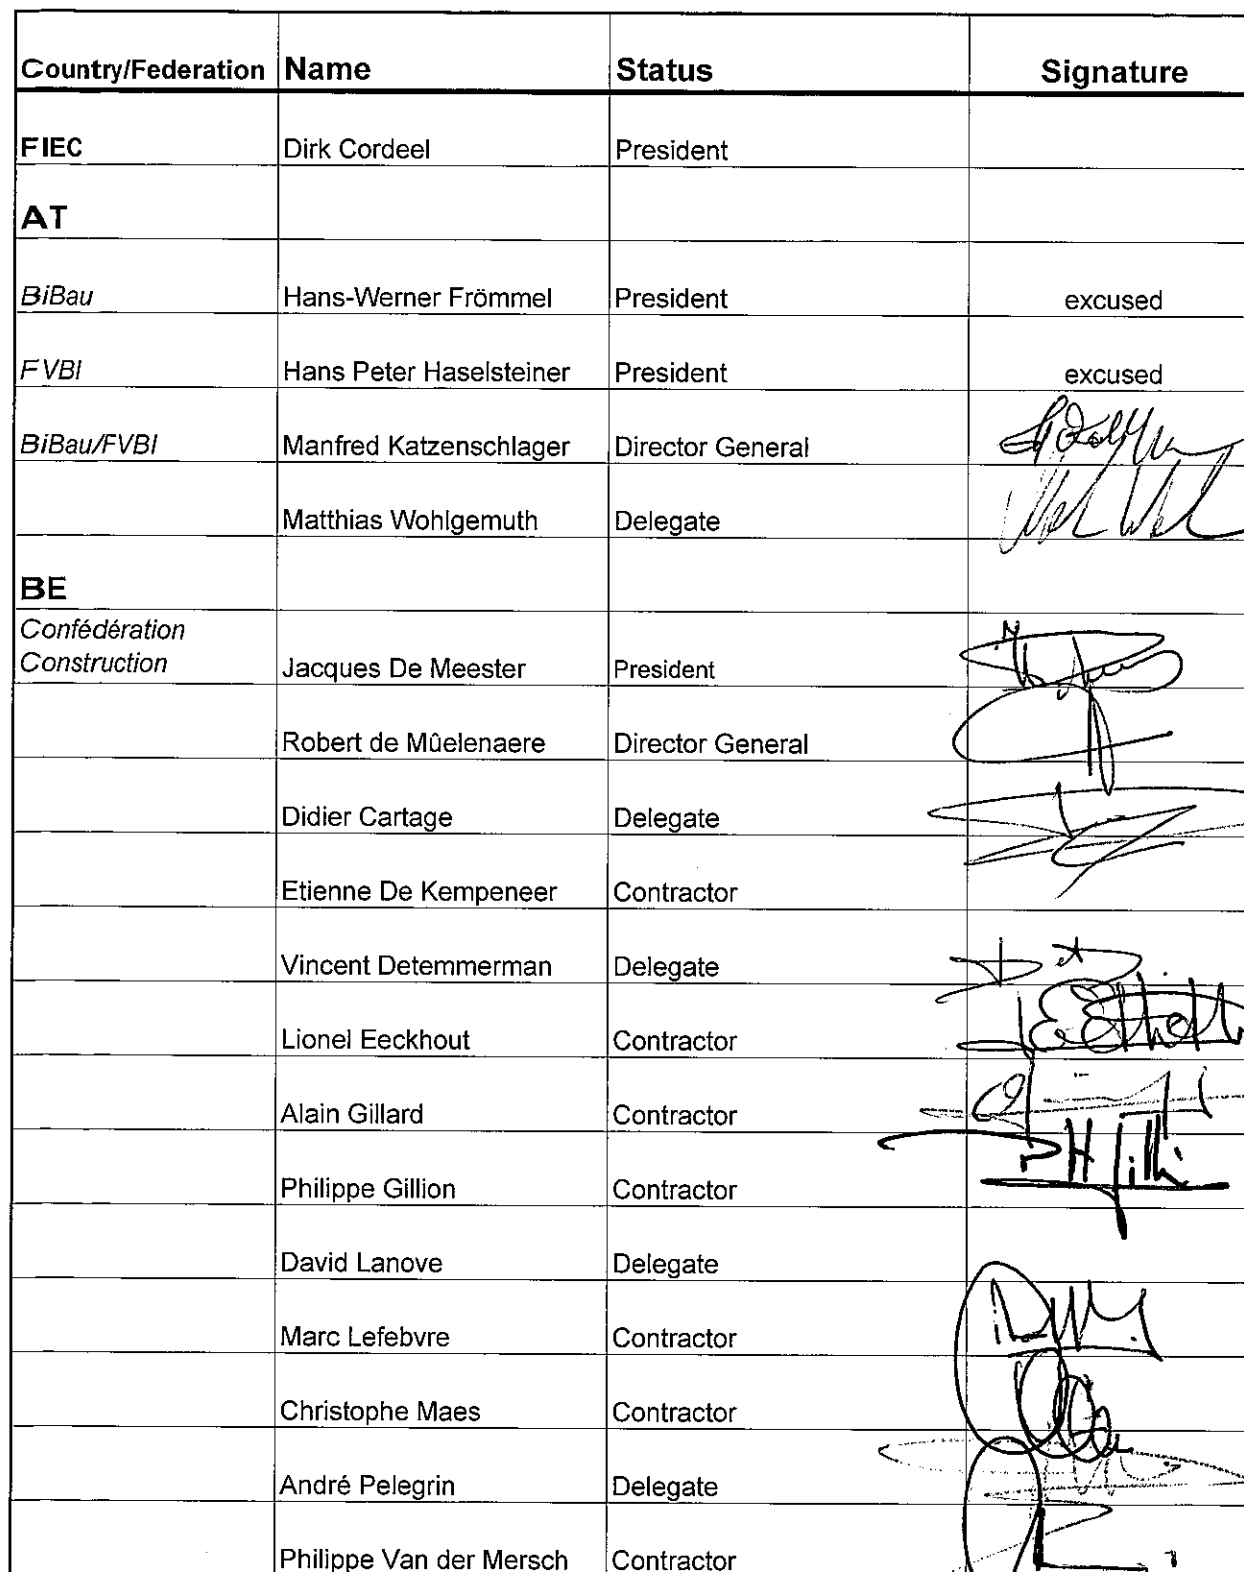 Country/Federation Name Status Signature
FIEC Dirk Cordeel President
AT
BiBau Hans-Werner Frömmel President excused
FVBI Hans Peter Haselsteiner President excused
BiBau/FVBI Manfred Katzenschlager Director General
Matthias Wohlgemuth Delegate
BE
Confédération
Construction Jacques De Meester President
Robert de Mûelenaere Director General
Didier Cartage Delegate
Etienne De Kempeneer Contractor
Vincent Detemmerman Delegate
Lionel Eeckhout Contractor
Alain Gillard Contractor
Philippe Gillion Contractor
David Lanove Delegate
Marc Lefebvre Contractor
Christophe Maes Contractor
André Pelegrin Delegate
Philippe Van der Mersch Contractor